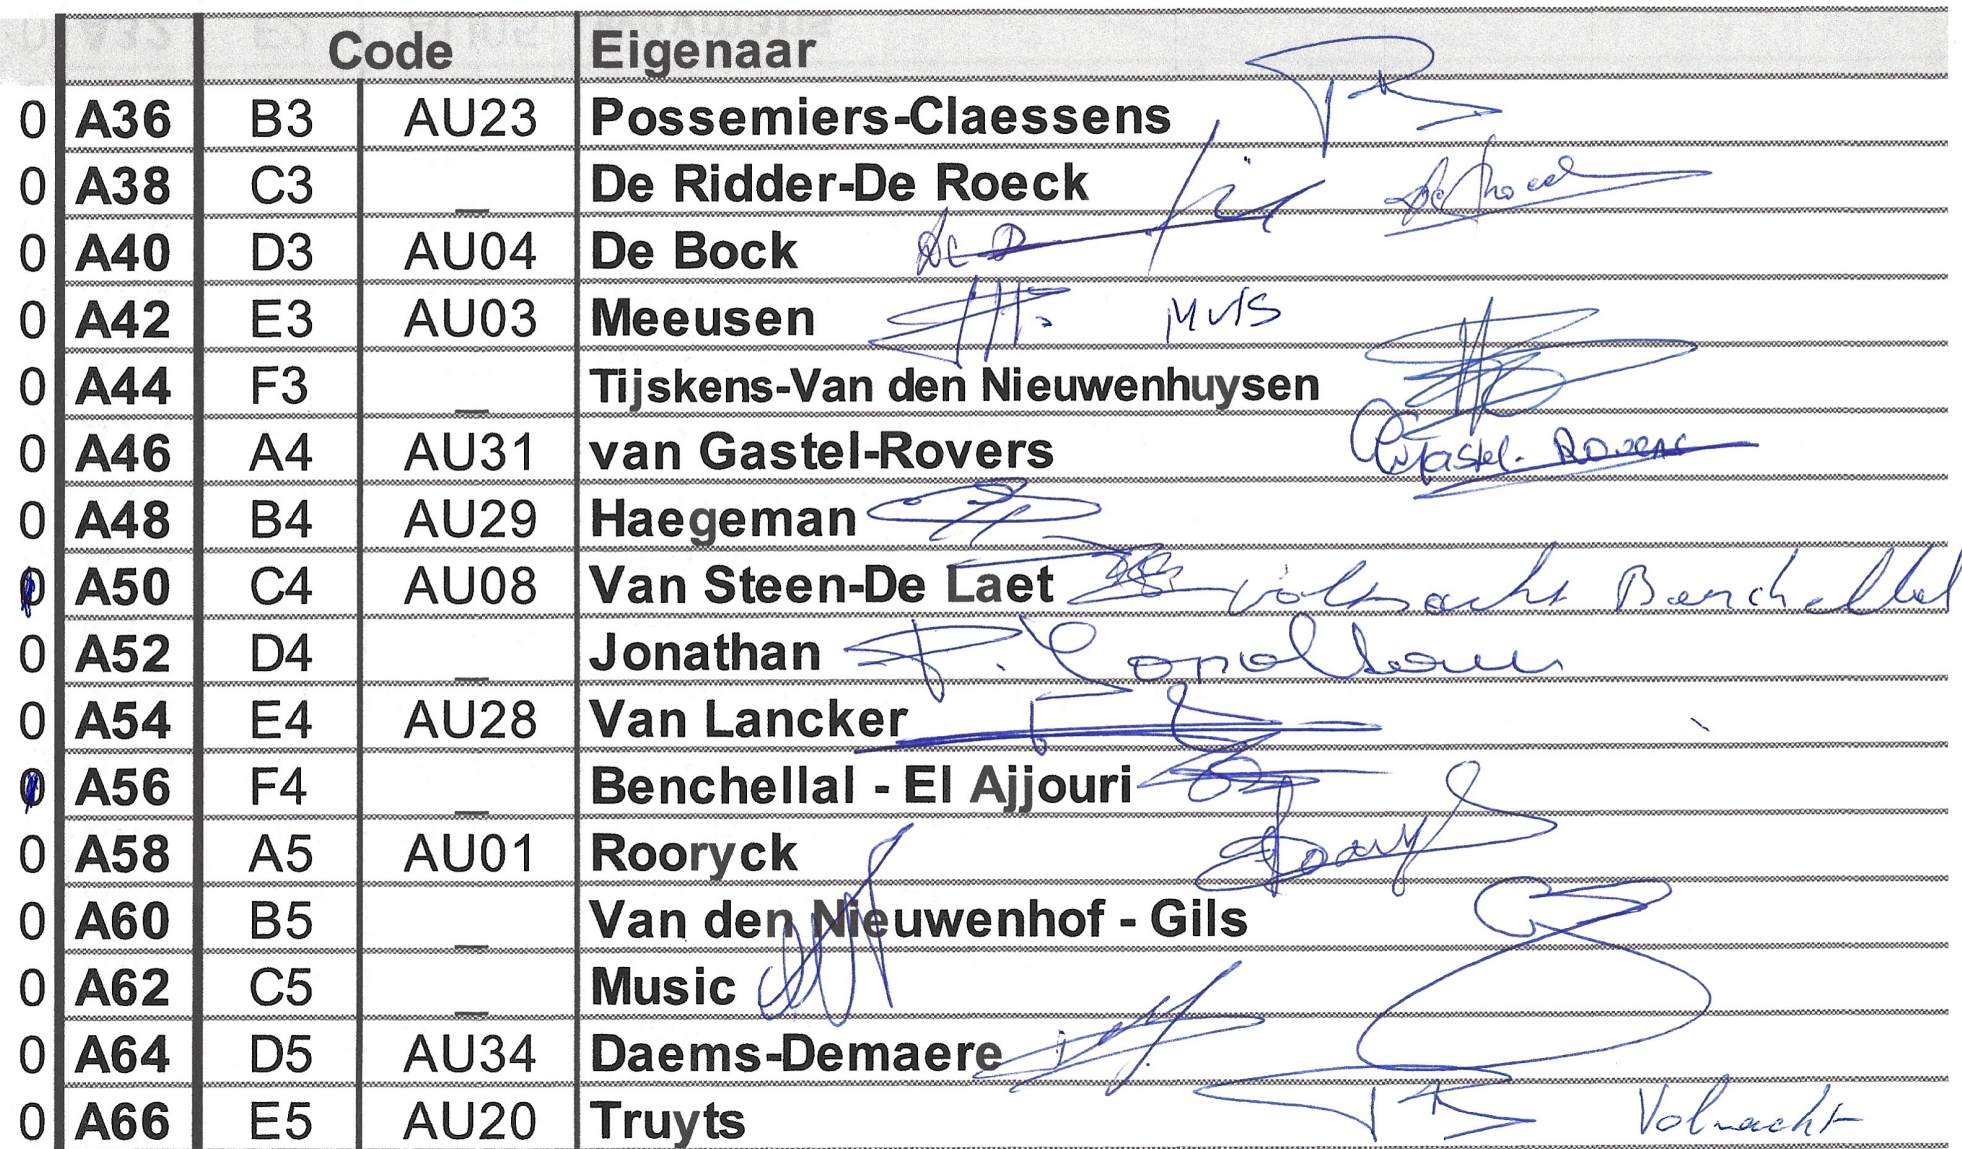 Code Eigenaar
0 A36 B3 AU23 Possemiers-Claessens
0 A38 C3 _ De Ridder-De Roeck De Roeck
0 A40 D3 AU04 De Bock
0 A42 E3 AU03 Meeusen
0 A44 F3 _ Tijskens-Van den Nieuwenhuysen
0 A46 A4 AU31 van Gastel-Rovers
0 A48 B4 AU29 Haegeman
0 A50 C4 AU08 Van Steen-De Laet Volmacht Benchellal
0 A52 D4 _ Jonathan
0 A54 E4 AU28 Van Lancker
0 A56 F4 _ Benchellal - El Ajjouri
0 A58 A5 AU01 Rooryck
0 A60 B5 _ Van den Nieuwenhof - Gils
0 A62 C5 _ Music
0 A64 D5 AU34 Daems-Demaere
0 A66 E5 AU20 Truyts Volmacht